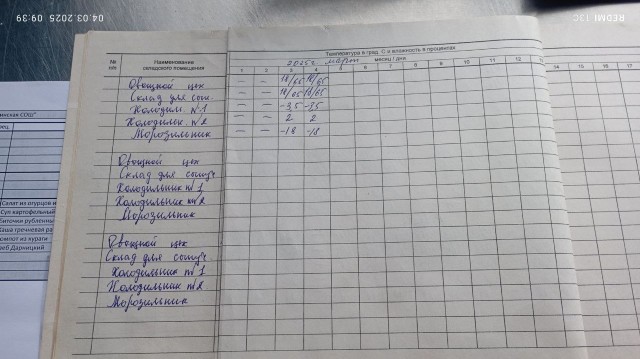 04.03.2025 09:39
REDMI 13C
Температура в град. С и влажность в процентах
№ п/п
Наименование складского помещения
2025г март месяц / дни
1 2 3 4 5 6 7 8 9 10 11 12 13 14 15 16 17
Овощной цех – –
Склад для сып. – –
Холодильн. №1 – – -3,5 -3,5
Холодильн. №2 – – 2 2
Морозильник – – -18 -18
Овощной цех
Склад для сыпуч
Холодильник №1
Холодильник №2
Морозильник
Овощной цех
Склад для сыпуч.
Холодильник №1
Холодильник №2
Морозильник
инская СОШ"
Салат из огурцов и
Суп картофельный
биточки рубленны
Каша гречневая ра
компот из кураги
леб Дарницкий